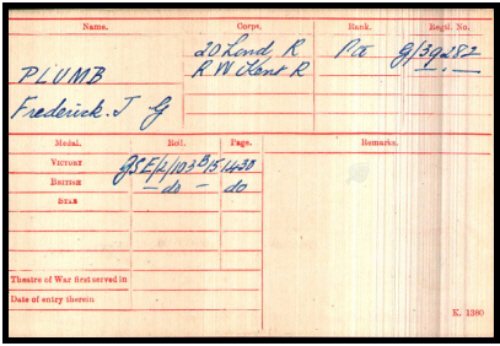 Name. Corps. Rank. Regtl. No.
20 Lond R Pte G/39282
PLUMB R W Kent R — . —
Frederick. J G
Medal. Roll. Page. Remarks.
VICTORY GSE/2/103B15 1430
BRITISH — do — do
STAR
Theatre of War first served in
Date of entry therein
K. 1380